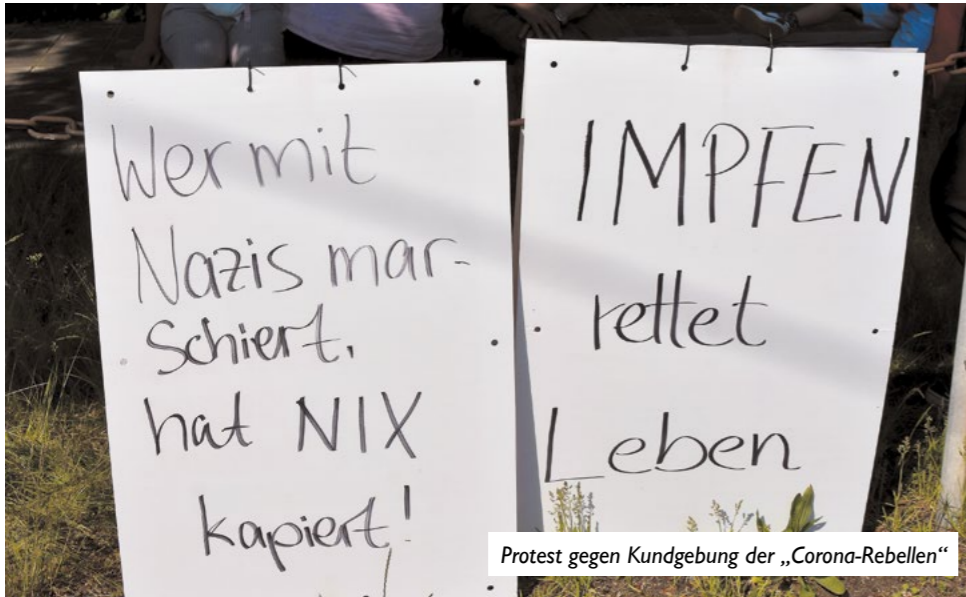 Wer mit
Nazis mar-
schiert,
hat NIX
kapiert!
IMPFEN
rettet
Leben
Protest gegen Kundgebung der „Corona-Rebellen“